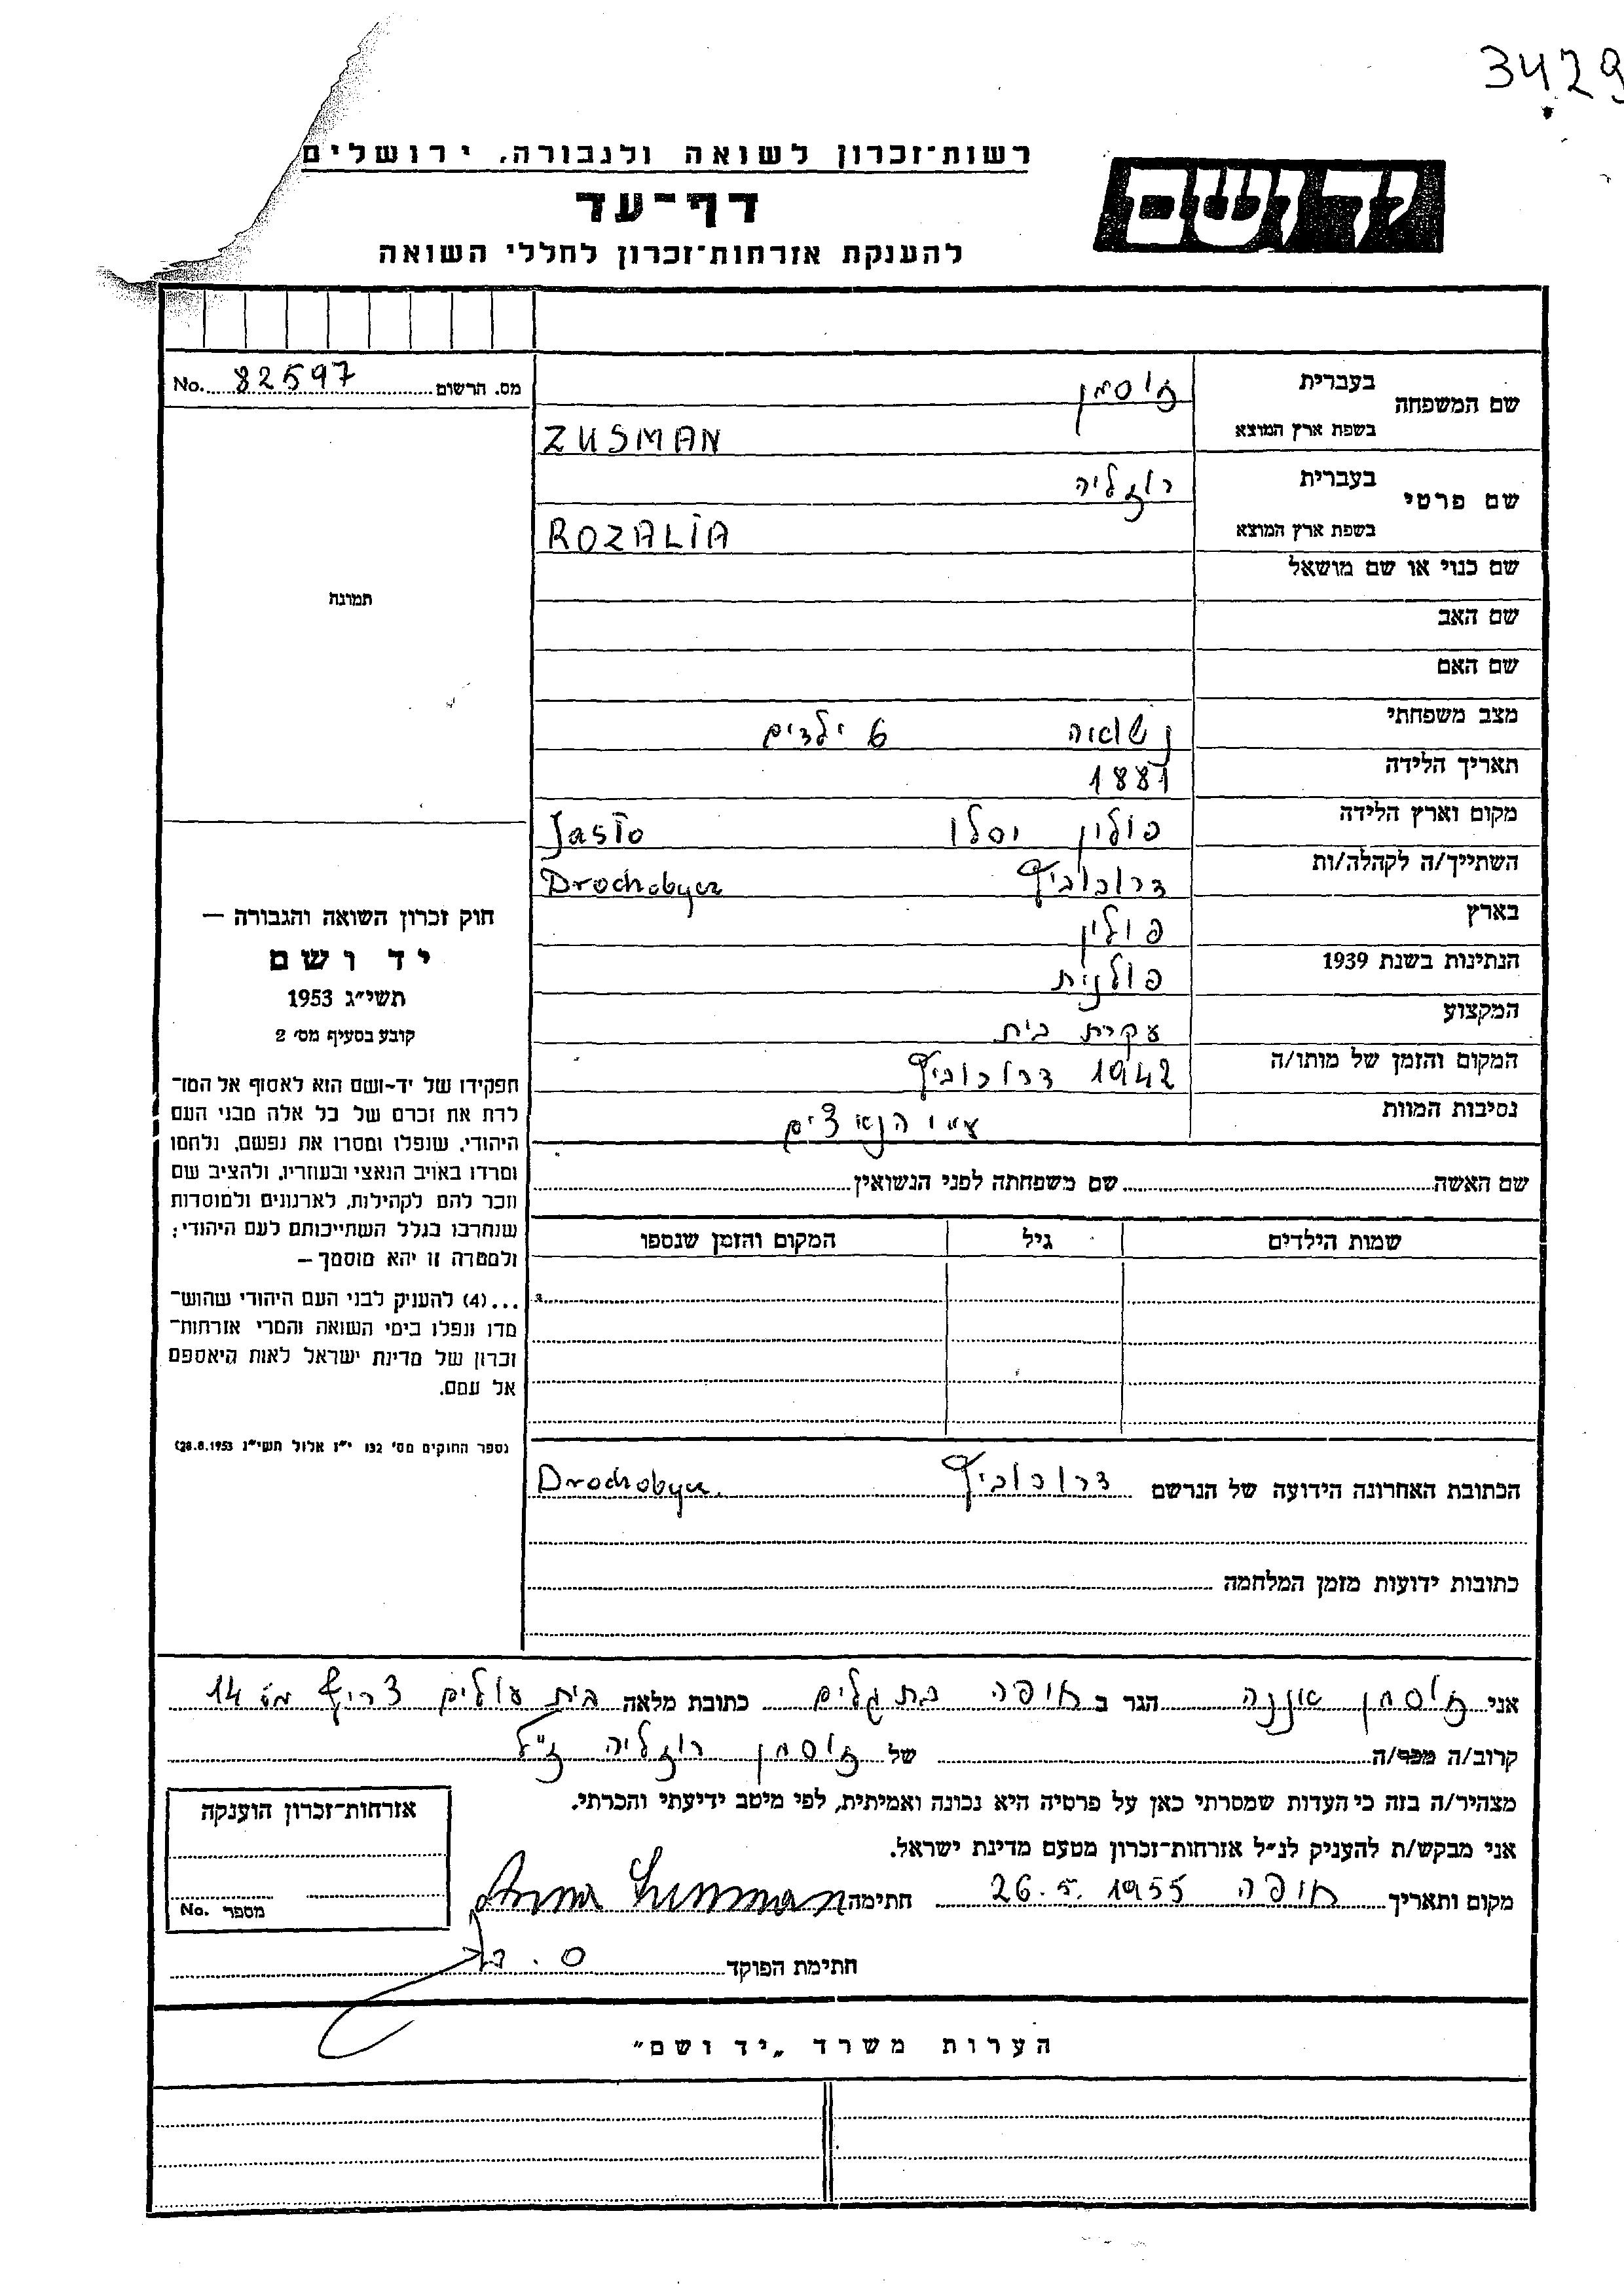 3429
רשות־זכרון לשואה ולגבורה, ירושלים
יד ושם
דף־עד
להענקת אזרחות־זכרון לחללי השואה
מס. הרשום 82597 No.
שם המשפחה בעברית זוסמן
בשפת ארץ המוצא ZUSMAN
שם פרטי בעברית רוזליה
בשפת ארץ המוצא ROZALIA
שם כנוי או שם מושאל
שם האב
שם האם
מצב משפחתי נשואה 6 ילדים
תאריך הלידה 1881
מקום וארץ הלידה פולין יסלו Jasło
השתייך/ה לקהלה/ות דרוכוביץ Drochobycz
בארץ פולין
הנתינות בשנת 1939 פולנית
המקצוע עקרת בית
המקום והזמן של מותו/ה 1942 דרוכוביץ
נסיבות המוות ע"י הנאצים
תמונה
חוק זכרון השואה והגבורה —
יד ושם
תשי״ג 1953
קובע בסעיף מס׳ 2
תפקידו של יד-ושם הוא לאסוף אל המו־
לדת את זכרם של כל אלה מבני העם
היהודי, שנפלו ומסרו את נפשם, נלחמו
ומרדו באויב הנאצי ובעוזריו, ולהציב שם
וזכר להם לקהילות, לארגונים ולמוסדות
שנחרבו בגלל השתייכותם לעם היהודי;
ולמטרה זו יהא מוסמך —
...(4) להעניק לבני העם היהודי שהוש־
מדו ונפלו בימי השואה והמרי אזרחות־
זכרון של מדינת ישראל לאות היאספם
אל עמם.
(ספר החוקים מס׳ 132 י״ז אלול תשי״ג 28.8.1953)
שם האשה שם משפחתה לפני הנשואין
שמות הילדים גיל המקום והזמן שנספו
הכתובת האחרונה הידועה של הנרשם דרוכוביץ Drochobycz
כתובות ידועות מזמן המלחמה
אני זוסמן אננה הגר ב חיפה בת גלים כתובת מלאה בית עולים צריף מס 14
קרוב/ה מכר/ה של זוסמן רוזליה ז"ל
מצהיר/ה בזה כי העדות שמסרתי כאן על פרטיה היא נכונה ואמיתית, לפי מיטב ידיעתי והכרתי.
אני מבקש/ת להעניק לנ״ל אזרחות־זכרון מטעם מדינת ישראל.
מקום ותאריך חיפה 26.5.1955 חתימה Anna Zusman
חתימת הפוקד
אזרחות־זכרון הוענקה
מספר No.
הערות משרד „יד ושם״